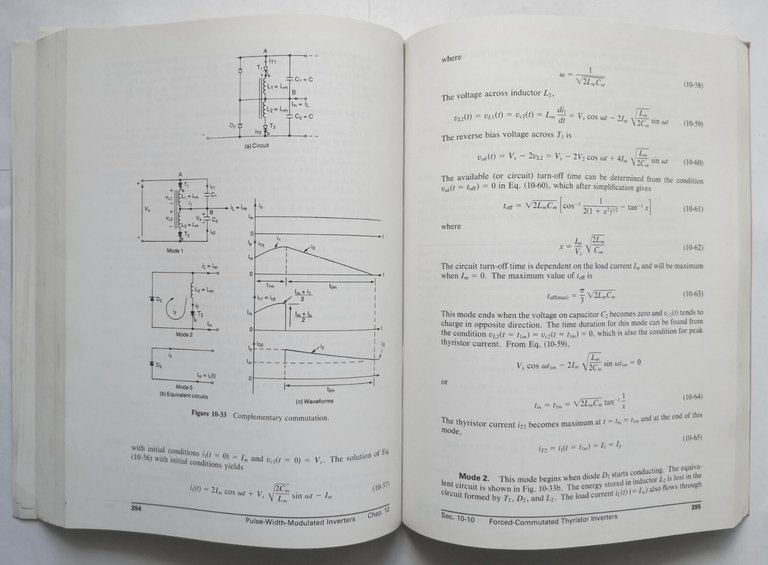 A
iT1
T1
L1 = Lm
C1 = C
B
Im = iL
L2 = Lm
C2 = C
D2
T2
iT2
(a) Circuit
A
T1
iC1
C1
Vs
vL1
L1 = Lm
i1
iL = Im
vL2
Vs
B
C2
L2 = Lm
iC2
T2
Mode 1
iL = Im
D2
L2 = Lm
i2
T2
Im
Mode 2
D2
Im = iL(t)
Mode 3
(b) Equivalent circuits
Im
0
t
iT2
i1
i2
Im
0
t
t1m
t2m
iC1 = iC2
Im + i1
2
Im
0
t
iD2
i2
Im
0
t
t2m
(c) Waveforms
Figure 10-33 Complementary commutation.
with initial conditions i1(t = 0) = Im and vc2(t = 0) = Vs. The solution of Eq.
(10-56) with initial conditions yields
i1(t) = 2Im cos ωt + Vs √(2Cm/Lm) sin ωt − Im (10-57)
394 Pulse-Width-Modulated Inverters Chap. 10
where
ω = 1/√(2LmCm) (10-58)
The voltage across inductor L2,
vL2(t) = vL1(t) = vc2(t) = Lm di1/dt = Vs cos ωt − 2Im √(Lm/2Cm) sin ωt (10-59)
The reverse bias voltage across T1 is
vak(t) = Vs − 2vL2 = Vs − 2V2 cos ωt + 4Im √(Lm/2Cm) sin ωt (10-60)
The available (or circuit) turn-off time can be determined from the condition
vak(t = toff) = 0 in Eq. (10-60), which after simplification gives
toff = √(2LmCm) [cos−1 1/2(1 + x2)1/2 − tan−1 x] (10-61)
where
x = Im/Vs √(2Lm/Cm) (10-62)
The circuit turn-off time is dependent on the load current Im and will be maximum
when Im = 0. The maximum value of toff is
toff(max) = π/3 √(2LmCm) (10-63)
This mode ends when the voltage on capacitor C2 becomes zero and vc2(t) tends to
charge in opposite direction. The time duration for this mode can be found from
the condition vL2(t = t1m) = vc2(t = t1m) = 0, which is also the condition for peak
thyristor current. From Eq. (10-59),
Vs cos ωt1m − 2Im √(Lm/2Cm) sin ωt1m = 0
or
tm = t1m = √(2LmCm) tan−1 1/x (10-64)
The thyristor current iT2 becomes maximum at t = tm = t1m and at the end of this
mode,
iT2 = i1(t = t1m) = I1 = Ip (10-65)
Mode 2. This mode begins when diode D2 starts conducting. The equiva-
lent circuit is shown in Fig. 10-33b. The energy stored in inductor L2 is lost in the
circuit formed by T2, D2, and L2. The load current iL(t) (= Im) also flows through
Sec. 10-10 Forced-Commutated Thyristor Inverters 395